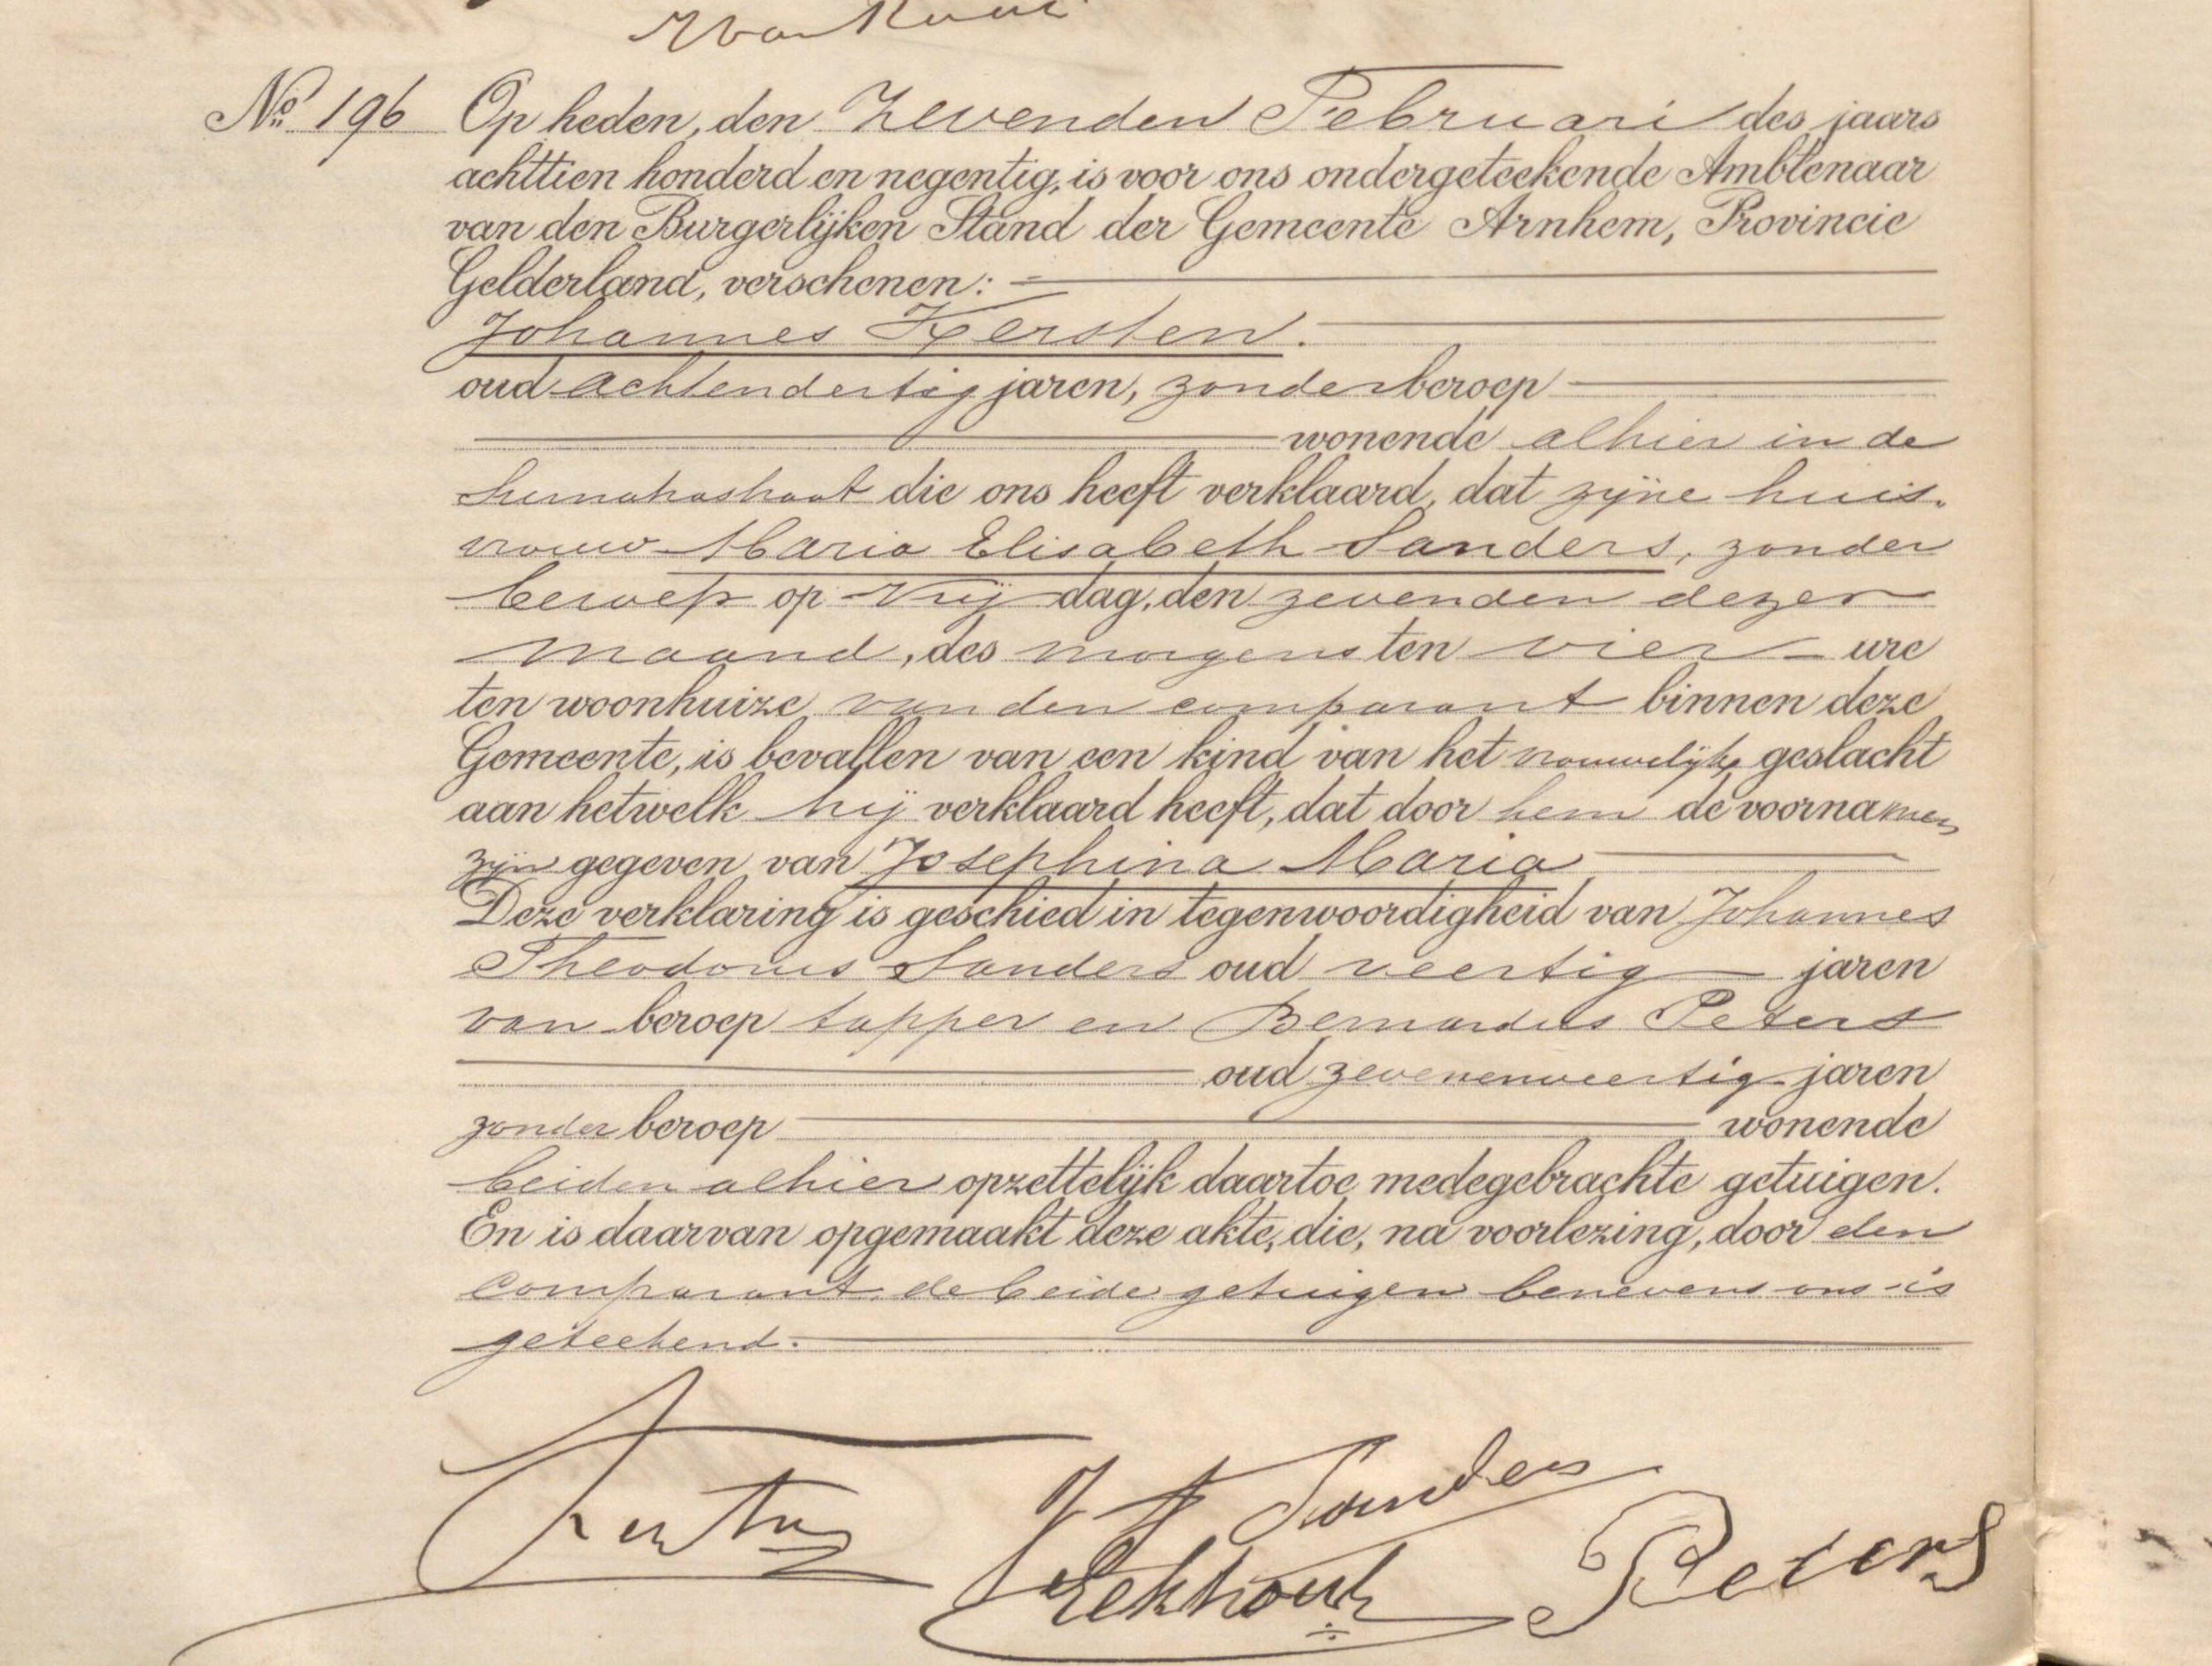 No 196 Op heden, den Zevenden Februari des jaars
achttien honderd en negentig, is voor ons ondergeteekende Ambtenaar
van den Burgerlijken Stand der Gemeente Arnhem, Provincie
Gelderland, verschenen:
Johannes Kersten.
oud achtendertig jaren, zonder beroep
wonende alhier in de
Sumatrastraat die ons heeft verklaard, dat zijne huis-
vrouw Maria Elisabeth Sanders, zonder
beroep op Vrijdag, den zevenden dezer
maand, des morgens ten vier ure
ten woonhuize van den comparant binnen deze
Gemeente, is bevallen van een kind van het vrouwelijk geslacht
aan hetwelk hij verklaard heeft, dat door hem de voornamen
zijn gegeven van Josephina Maria
Deze verklaring is geschied in tegenwoordigheid van Johannes
Theodorus Sanders oud veertig jaren
van beroep tapper en Bernardus Peters
oud zevenenveertig jaren
zonder beroep wonende
beiden alhier opzettelijk daartoe medegebrachte getuigen.
En is daarvan opgemaakt deze akte, die, na voorlezing, door den
comparant, de beide getuigen benevens ons is
geteekend.
Kersten JT Sanders
Peters